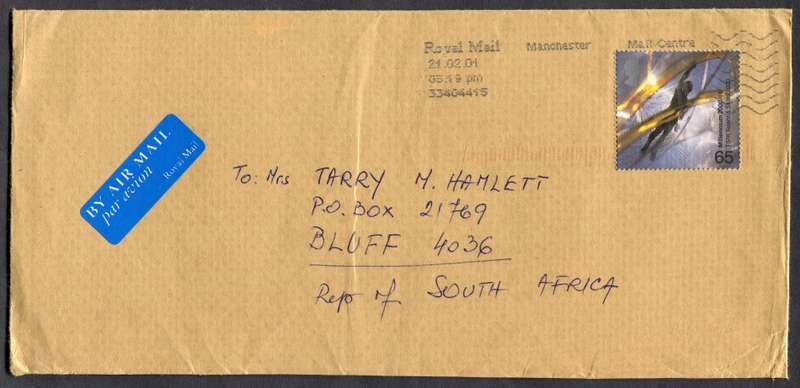 Royal Mail Manchester Mail Centre
21.02.01
05:19 pm
33404415
65
BY AIR MAIL
par avion
Royal Mail
To: Mrs TARRY M. HAMLETT
P.O. BOX 21769
BLUFF 4036
Rep of SOUTH AFRICA